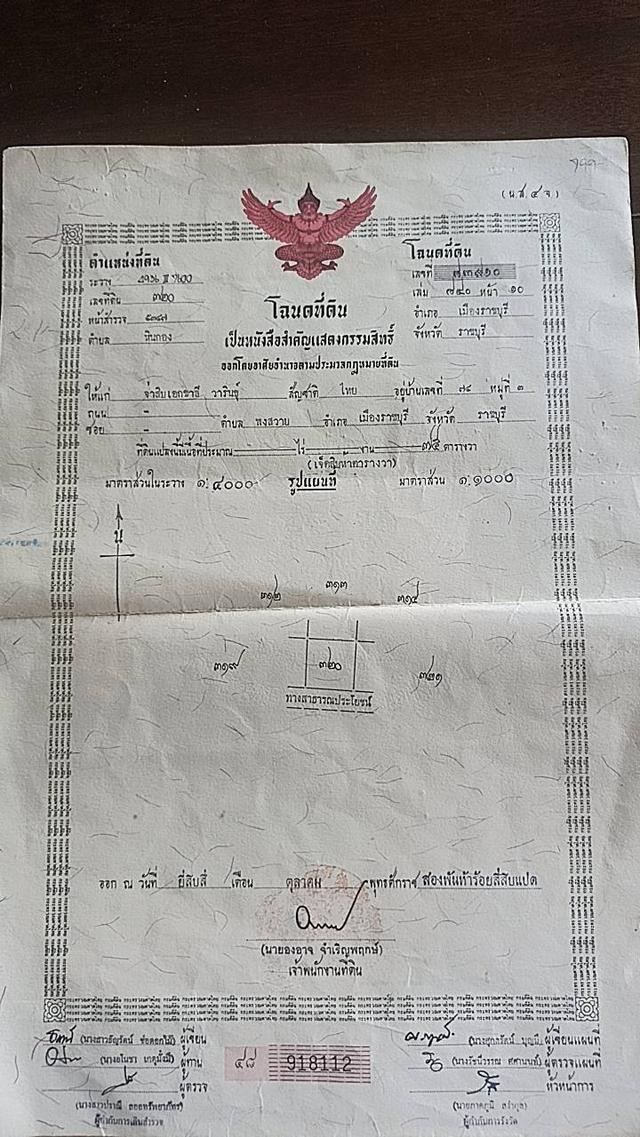 (น.ส. ๔ จ.)
ตำแหน่งที่ดิน
ระวาง
เลขที่ดิน ๓๒๐
หน้าสำรวจ
ตำบล หินกอง
โฉนดที่ดิน
เลขที่ ๗๓๙๑๐
เล่ม ๗๔๐ หน้า ๑๐
อำเภอ เมืองราชบุรี
จังหวัด ราชบุรี
โฉนดที่ดิน
เป็นหนังสือสำคัญแสดงกรรมสิทธิ์
ออกโดยอาศัยอำนาจตามประมวลกฎหมายที่ดิน
ให้แก่ จ่าสิบเอกชาลี วารินธุ์ สัญชาติ ไทย อยู่บ้านเลขที่ ๗๔ หมู่ที่ ๓
ถนน -
ซอย - ตำบล พงสวาย อำเภอ เมืองราชบุรี จังหวัด ราชบุรี
ที่ดินแปลงนี้มีเนื้อที่ประมาณ - ไร่ - งาน ๗๕ ตารางวา
(เจ็ดสิบห้าตารางวา)
มาตราส่วนในระวาง ๑:๔๐๐๐ รูปแผนที่ มาตราส่วน ๑:๑๐๐๐
น
๓๑๒ ๓๑๓ ๓๑๔
๓๑๙ ๓๒๐ ๓๒๑
ทางสาธารณประโยชน์
ออก ณ วันที่ ยี่สิบสี่ เดือน ตุลาคม พุทธศักราช สองพันห้าร้อยสี่สิบแปด
(นายองอาจ จำเริญพฤกษ์)
เจ้าพนักงานที่ดิน
ผู้เขียน
ผู้ทาน
ผู้ตรวจ
ผู้กำกับการเดินสำรวจ
๔๘ 918112
ผู้เขียนแผนที่
ผู้ตรวจแผนที่
หัวหน้าการ
ผู้กำกับการรังวัด